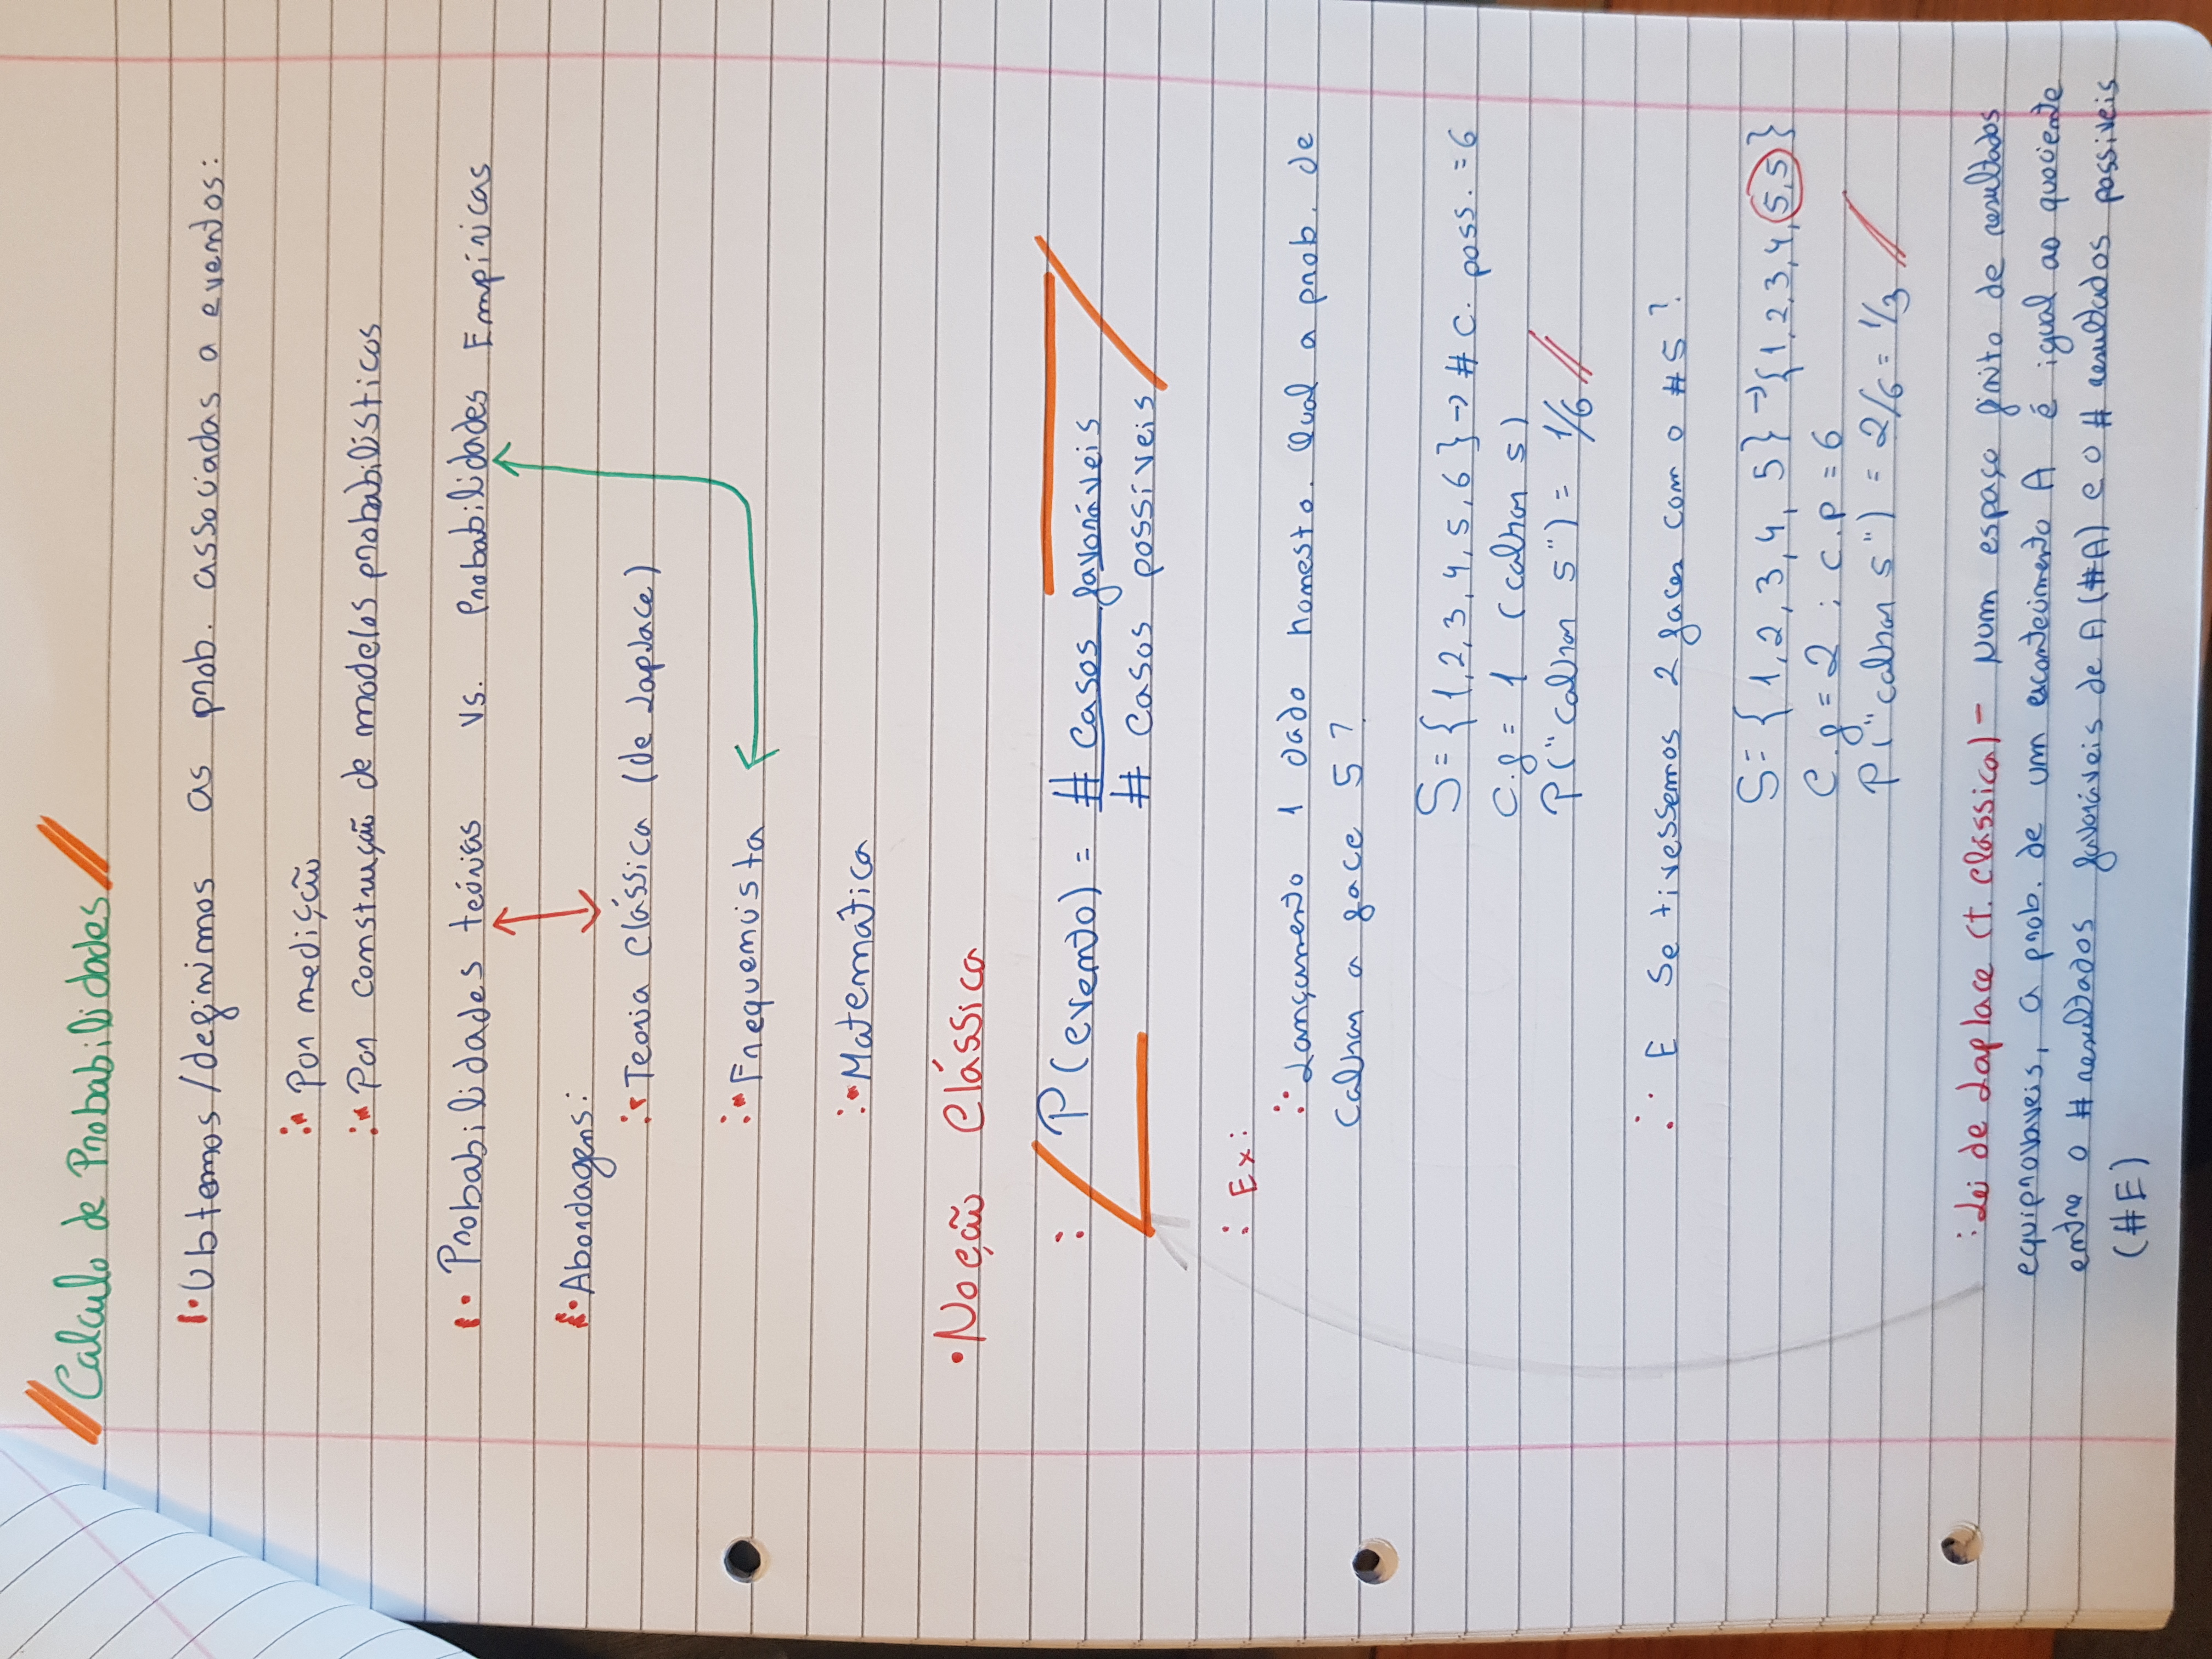 Calculo de Probabilidades
Obtemos/definimos as prob. associadas a eventos:
Por medição
Por construção de modelos probabilísticos
Probabilidades teóricas vs. Probabilidades Empíricas
Abordagens:
Teoria Clássica (de Laplace)
Frequencista
Matemática
Noção Clássica
P(evento) = # Casos favoráveis
# Casos possíveis
Ex:
Lançamento 1 dado honesto. Qual a prob. de
Calhar a face 5?
S = {1,2,3,4,5,6} → # C. poss. = 6
C.f = 1 (calhar 5)
P("calhar 5") = 1/6
E se tivessemos 2 faces com o #5?
S = {1,2,3,4, 5} → {1,2,3,4,5,5}
C.f = 2 ; C.p = 6
P("calhar 5") = 2/6 = 1/3
Lei de Laplace (t. Clássica) - Num espaço finito de resultados
equiprovaveis, a prob. de um acontecimento A é igual ao quociente
entre o # resultados favoráveis de A (#A) e o # resultados possiveis
(#E)